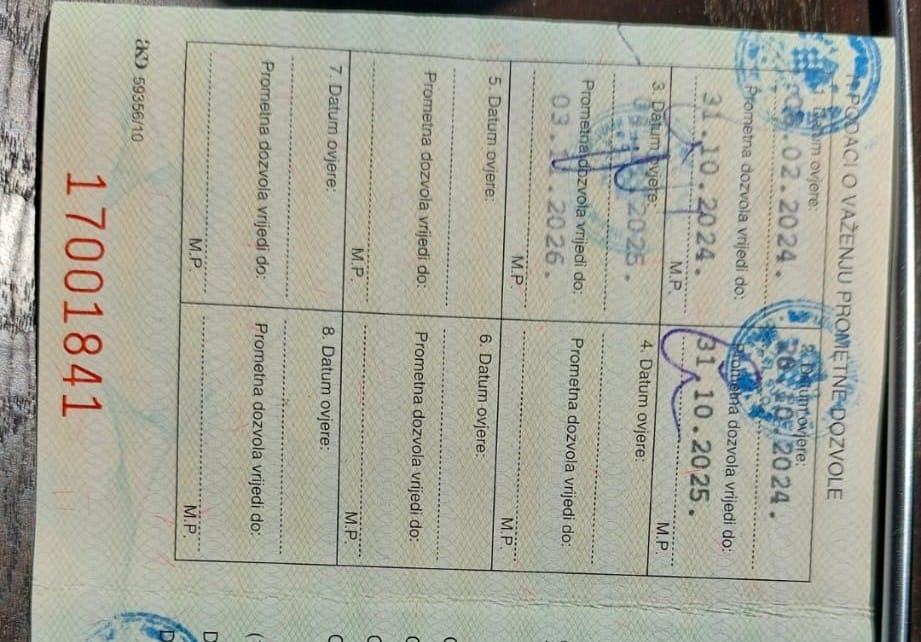 1. PODACI O VAŽENJU PROMETNE DOZVOLE
1. Datum ovjere:
.02.2024.
Prometna dozvola vrijedi do:
31.10.2024.
M.P.
2. Datum ovjere:
2024.
Prometna dozvola vrijedi do:
31.10.2025.
M.P.
3. Datum ovjere:
2025.
Prometna dozvola vrijedi do:
03. .2026.
M.P.
4. Datum ovjere:
Prometna dozvola vrijedi do:
M.P.
5. Datum ovjere:
Prometna dozvola vrijedi do:
M.P.
6. Datum ovjere:
Prometna dozvola vrijedi do:
M.P.
7. Datum ovjere:
Prometna dozvola vrijedi do:
M.P.
8. Datum ovjere:
Prometna dozvola vrijedi do:
M.P.
59356/10
17001841